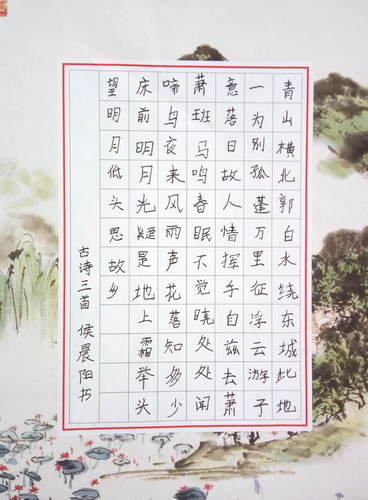 青山横北郭白水绕东城此地
一为别孤蓬万里征浮云游子
意落日故人情挥手自兹去萧
萧班马鸣春眠不觉晓处处闻
啼鸟夜来风雨声花落知多少
床前明月光疑是地上霜举头
望明月低头思故乡
古诗三首 侯晨阳书